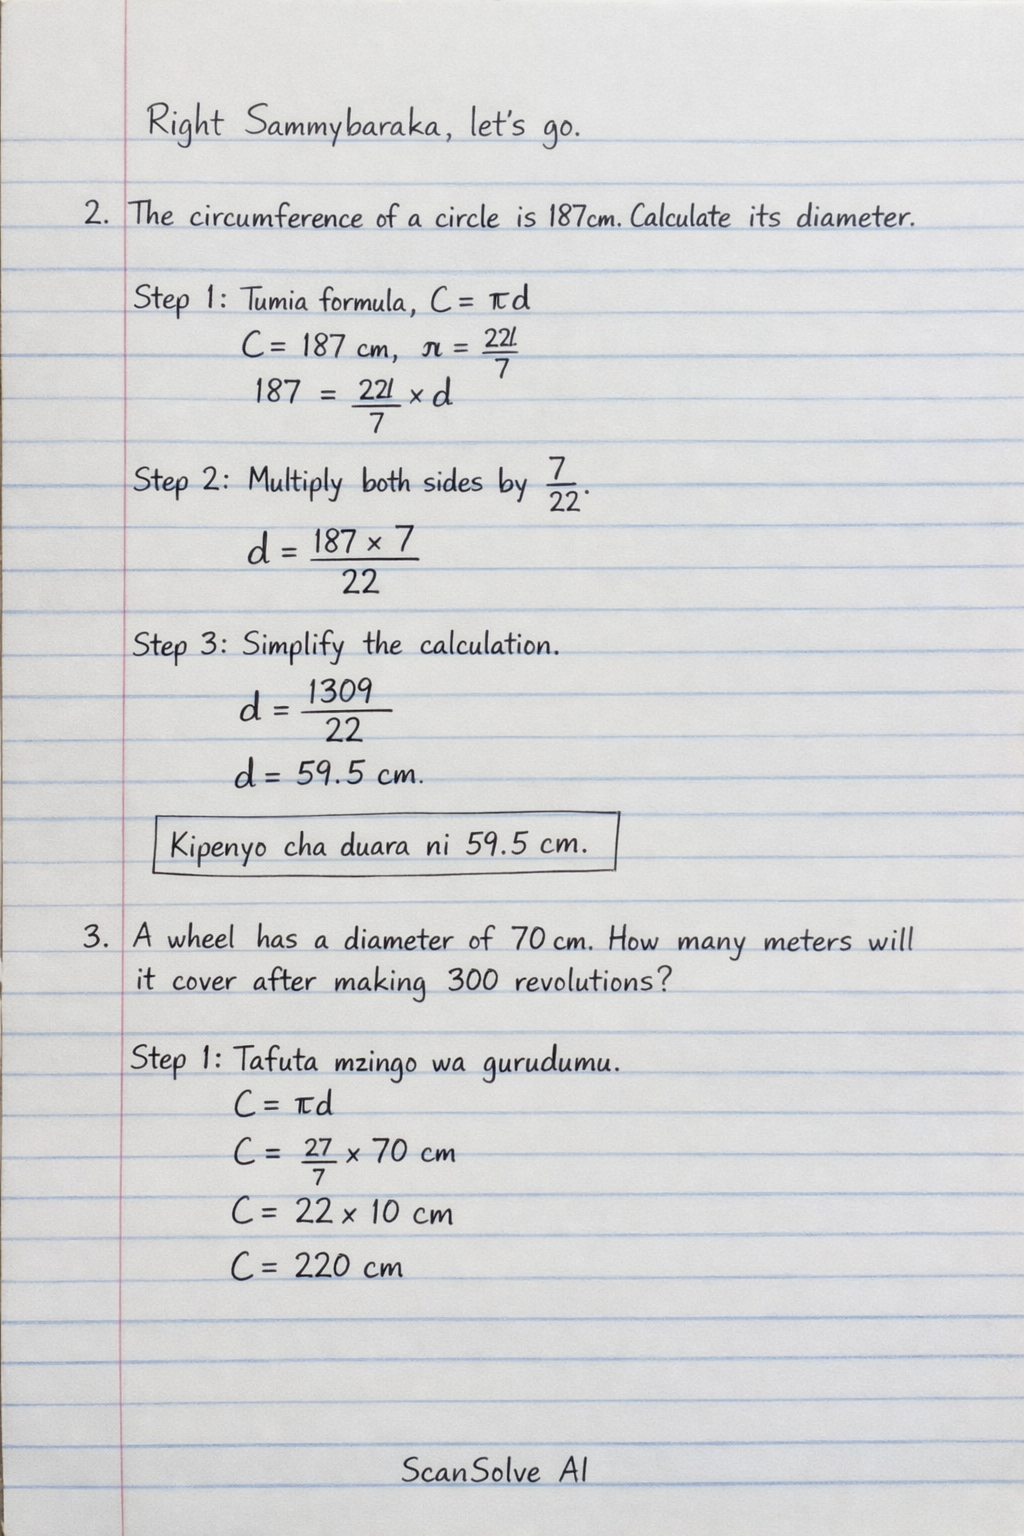 Right Sammybaraka, let's go.
2. The circumference of a circle is 187cm. Calculate its diameter.
Step 1: Tumia formula, C = πd
C = 187 cm, π = 22/7
187 = 22/7 × d
Step 2: Multiply both sides by 7/22.
d = 187 × 7/22
Step 3: Simplify the calculation.
d = 1309/22
d = 59.5 cm.
Kipenyo cha duara ni 59.5 cm.
3. A wheel has a diameter of 70 cm. How many meters will
it cover after making 300 revolutions?
Step 1: Tafuta mzingo wa gurudumu.
C = πd
C = 27/7 × 70 cm
C = 22 × 10 cm
C = 220 cm
ScanSolve AI